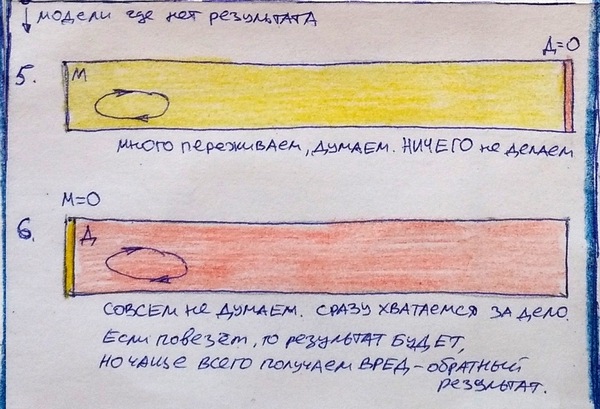 модели где нет результата
Д=0
5.
М
много переживаем, думаем. НИЧЕГО не делаем
М=0
6.
Д
СОВСЕМ не думаем. СРАЗУ хватаемся за дело.
Если повезёт, то результат БУДЕТ,
но чаще всего получаем ВРЕД - обратный
результат.